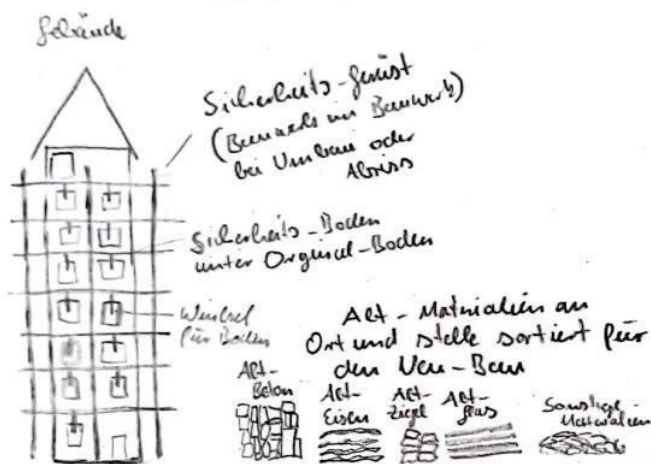 Gebäude
Sicherheits-Gerüst
(Bauwerk im Bauwerk)
bei Umbau oder
Abriss
Sicherheits-Boden
unter Orginal-Boden
Winkel
für Boden
Alt-Materialien an
Ort und stelle sortiert für
den Neu-Bau
Alt-
Beton
Alt-
Eisen
Alt-
Ziegel
Alt-
glas
Sonstige-
Materialien